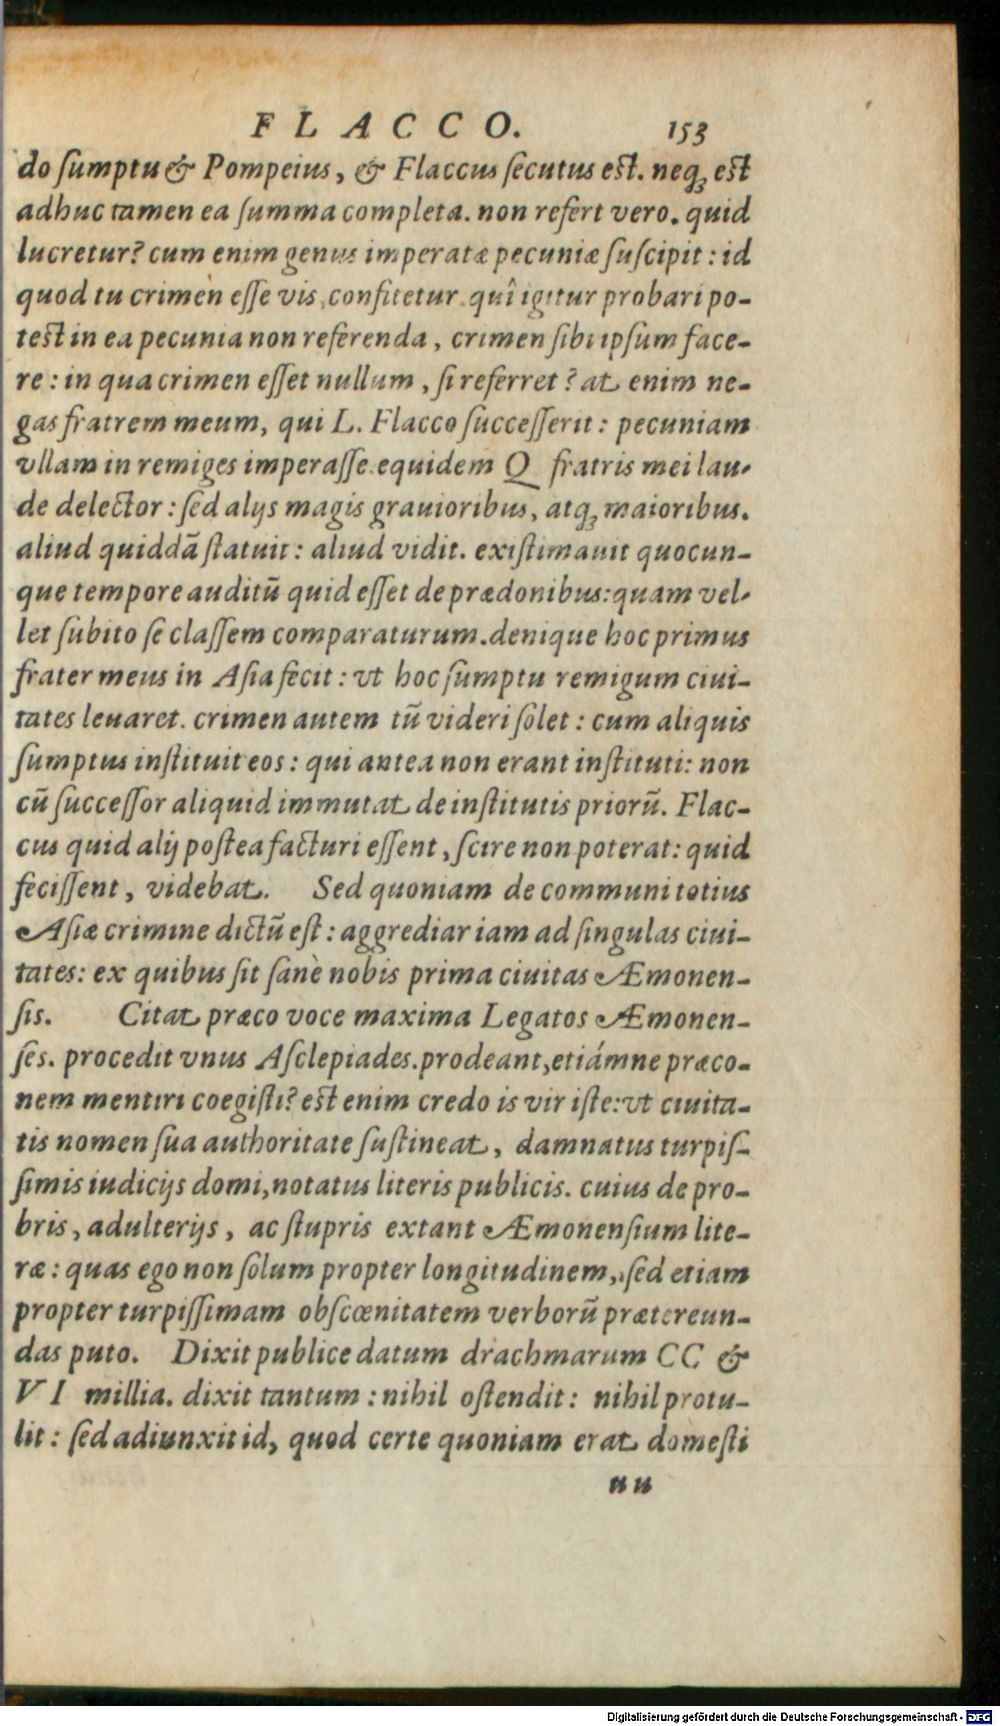 FLACCO. 153
do ſumptu & Pompeius, & Flaccus ſecutus eſt. neq; eſt
adhuc tamen ea ſumma completa. non refert vero. quid
lucretur? cum enim genus imperatæ pecuniæ ſuſcipit: id
quod tu crimèn eſſe vis, confitetur. quî igitur probari po-
teſt in ea pecunia non referenda, crimen ſibi ipſum face-
re: in qua crimen eſſet nullum, ſi referret? at enim ne-
gas fratrem meum, qui L. Flacco ſucceſſerit: pecuniam
vllam in remiges imperaſſe. equidem Q fratris mei lau-
de delector: ſed alijs magis grauioribus, atq; maioribus.
aliud quiddã ſtatuit: aliud vidit. exiſtimauit quocun-
que tempore auditũ quid eſſet de prædonibus: quam vel-
let ſubito ſe claſſem comparaturum. denique hoc primus
frater meus in Aſia fecit: vt hoc ſumptu remigum ciui-
tates leuaret. crimen autem tũ videri ſolet: cum aliquis
ſumptus inſtituit eos: qui antea non erant inſtituti: non
cũ ſucceſſor aliquid immutat de inſtitutis priorũ. Flac-
cus quid alij poſtea facturi eſſent, ſcire non poterat: quid
feciſſent, videbat. Sed quoniam de communi totius
Aſiæ crimine dictũ eſt: aggrediar iam ad ſingulas ciui-
tates: ex quibus ſit ſanè nobis prima ciuitas Æmonen-
ſis. Citat præco voce maxima Legatos Æmonen-
ſes. procedit vnus Aſclepiades. prodeant, etiámne præco-
nem mentiri coegiſti? eſt enim credo is vir iſte: vt ciuita-
tis nomen ſua authoritate ſuſtineat, damnatus turpiſ-
ſimis iudicijs domi, notatus literis publicis. cuius de pro-
bris, adulterijs, ac ſtupris extant Æmonenſium lite-
ræ: quas ego non ſolum propter longitudinem, ſed etiam
propter turpiſſimam obſcœnitatem verborũ prætereun-
das puto. Dixit publice datum drachmarum CC &
VI millia. dixit tantum: nihil oſtendit: nihil protu-
lit: ſed adiunxit id, quod certe quoniam erat domeſti
uu
Digitalisierung gefördert durch die Deutsche Forschungsgemeinschaft - DFG